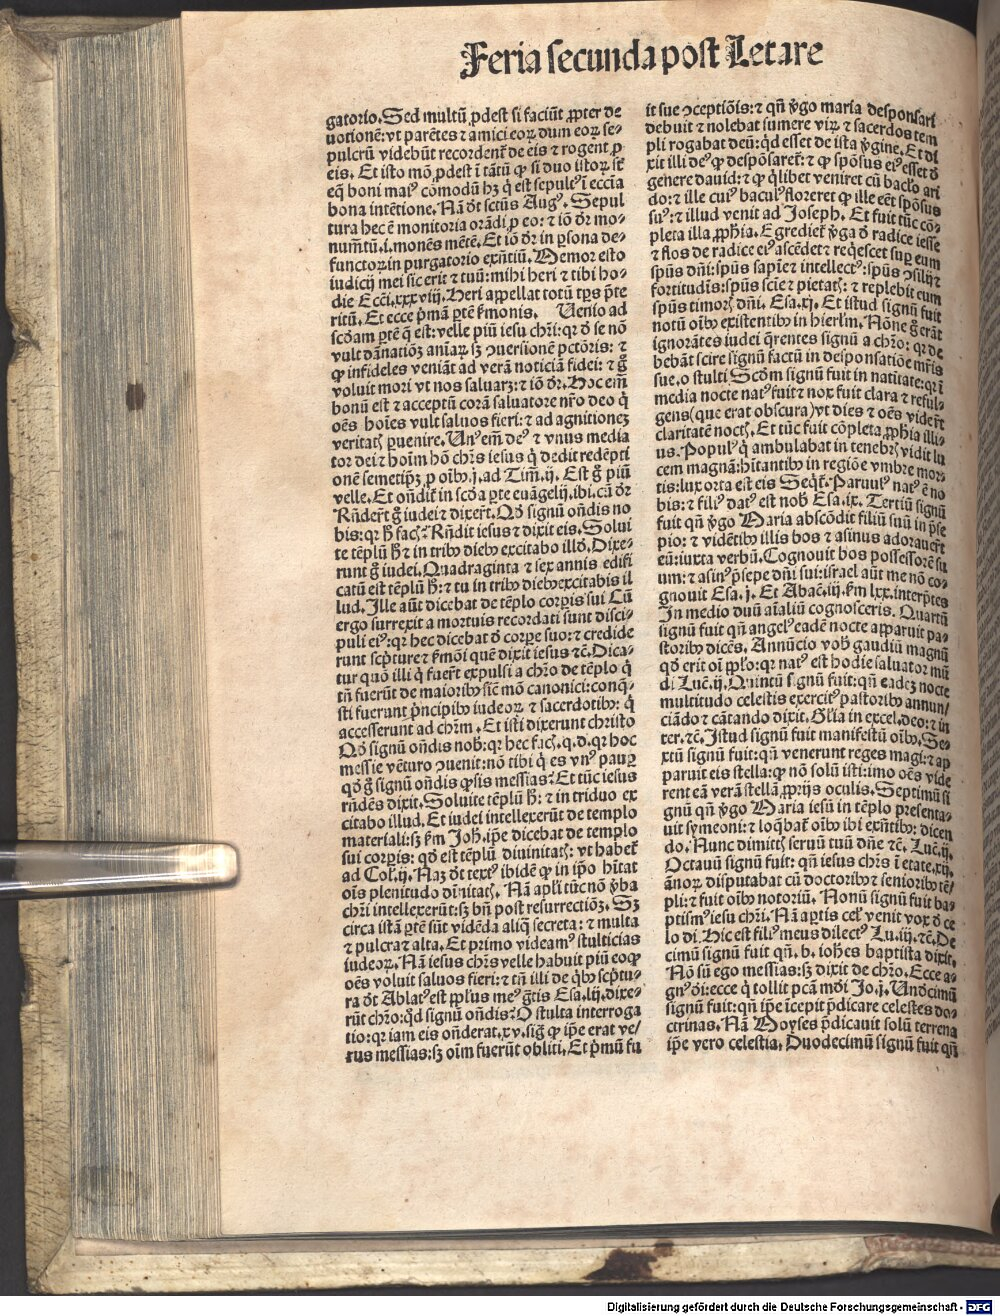 Feria secunda post Letare
gatorio. Sed multũ ꝓdest si faciũt ꝓpter de
uotionẽ: vt parẽtes ⁊ amici eoꝝ dum eoꝝ se-
pulcrũ videbũt recordent̃ de eis ⁊ rogent ꝓ
eis. Et isto mõ ꝓdest ĩ tãtũ ꝙ si duo istoꝝ sĩt
eq̃ boni maiꝰ cõmodũ hꝫ q̃ est sepulẽꝰ ĩ eccĩa
bona intẽtione. Nã ðt sctũs Augꝰ. Sepul
tura hec ẽ monitoria orãdi ꝓ eo: ⁊ iõ ðr mo-
numẽtũ .i. monẽs mẽtẽ. Et iõ ðr in ꝑsona de-
functoꝝ in purgatorio exñtiũ. Memor esto
iudicij mei sic erit ⁊ tuũ: mihi heri ⁊ tibi ho-
die Ecci. xxxviij. Heri appellat totũ tꝑs p̃te
ritũ. Et ecce p̃mã ꝑtẽ ẽmonis. Uenio ad
scðam ꝑtẽ q̃ est: velle piũ iesu chr̃i: qꝛ ð se nõ
vult dãnatiõꝫ aniaꝝ sꝫ ꝯuersionẽ pctõris: ⁊
ꝙ infideles veniãt ad verã noticiã fidei: ⁊ g̃
voluit mori vt nos saluarꝫ: ⁊ iõ ðr. Hoc em̃
bonũ est ⁊ acceptũ corã saluatore nr̃o deo q̃
oẽs hoĩes vult saluos fieri: ⁊ ad agnitioneꝫ
veritatꝭ ꝑuenire. Unꝰ em̃ deꝰ ⁊ vnus media
tor dei ⁊ hoĩm hõ chr̃s iesus q̃ dedit redẽpti
onẽ semetip̃ꝫ ꝓ oĩbꝰ .j. ad Tim̃. ij. Est g̃ piũ
velle. Et oñdit̃ in scða ꝑte euãgelij. ibi. cũ ðr
Rñder̃t g̃ iudei ⁊ dixer̃t. Qð signũ oñdis no
bis: qꝛ h̃ facꝭ? Rñdit iesus ⁊ dixit eis. Solui
te tẽplũ h̃ ⁊ in tribꝰ diebꝰ excitabo illð. Dixe-
runt g̃ iudei. Quadraginta ⁊ sex annis edifi
catũ est tẽplũ h̃: ⁊ tu in tribꝰ diebꝰ excitabis il
lud. Jlle aũt dicebat de tẽplo corꝑis sui Cũ
ergo surrexit a mortuis recordati sunt disci-
puli eiꝰ: qꝛ hec dicebat ð corꝑe suo: ⁊ credide
runt scp̃ture ⁊ ẽmõi quẽ dixit iesus ⁊c̃. Dica-
tur quõ illi q̃ fuer̃t expulsi a chr̃o de tẽplo q̃
tñ fuerũt de maioribꝰ sic̃ mõ canonici: conq̃-
sti fuerunt p̃ncipibꝰ iudeoꝝ ⁊ sacerdotibꝰ: q̃
accesserunt ad chr̃m. Et isti dixerunt christo
Qð signũ oñdis nob̃: qꝛ hec facꝭ. q. d. qꝛ hoc
messie vẽturo ꝯuenit: nõ tibi q̃ es vnꝰ pauꝑ
qð g̃ signũ oñdis ꝙ sis messias? Et tũc iesus
rñdẽs dixit. Soluite tẽplũ h̃: ⁊ in triduo ex
citabo illud. Et iudei intellexerũt de templo
materiali: sꝫ ẽm Joh̃. ip̃e dicebat de templo
sui corꝑis: qð est tẽplũ diuinitatꝭ: vt habet̃
ad Col̃. ij. Naꝫ ðt textꝰ ibidẽ ꝙ in ip̃o hĩtat
oĩs plenitudo dĩnitatꝭ. Nã apl̃i tũc nõ ṽba
chr̃i intellexerũt: sꝫ bñ post resurrectiõꝫ. Sꝫ
circa istã ꝑtẽ sũt vidẽda aliq̃ secreta: ⁊ multa
⁊ pulcra ⁊ alta. Et primo videamꝰ stulticias
iudeoꝝ. Nã iesus chr̃s velle habuit piũ eo ꝙ
oẽs voluit saluos fieri: ⁊ tñ illi de q̃bꝰ scp̃tu-
ra ðt Ablatꝰ est pp̃lus meꝰ gr̃tis Esa. lij. dixe-
rũt chr̃o: q̃d signũ oñdis? O stulta interroga
tio: qꝛ iam eis oñderat. xv. sig̃ ꝙ ipse erat ve/
rus messias: sꝫ oĩm fuerũt obliti. Et p̃mũ fu
it sue ꝯceptiõis: ⁊ qñ ṽgo maria desponsari
debuit ⁊ nolebat sumere viꝝ ⁊ sacerdos tem
pli rogabat deũ: qd esset de ista ṽgine. Et di
xit illi deꝰ ꝙ despõsaret̃: ⁊ ꝙ spõsus eiꝰ esset ð
genere dauid: ⁊ ꝙ q̃libet veniret cũ baclo ari
do: ⁊ ille cuiꝰ baculꝰ floreret ꝙ ille eẽt spõsus
suꝰ: ⁊ illud venit ad Joseph. Et fuit tũc cõ-
pleta illa ꝓph̃ia. Egrediet̃ ṽga ð radice iesse
⁊ flos de radice eiꝰ ascẽdet ⁊ reqescet suꝑ eum
spũs dñi: spũs sapiẽ ⁊ intellectꝰ: spũs ꝯsilij ⁊
fortitudĩs: spũs sciẽ ⁊ pietatꝭ: ⁊ replebit eum
spũs timorꝭ dñi. Esa. xj. Et istud signũ fuit
notũ oĩbꝰ existentibꝰ in hierl̃m. Nõne g̃ erãt
ignorãtes iudei q̃rentes signũ a chr̃o: qꝛ de
bebãt scire signũ factũ in desponsatiõe mr̃is
sue. o stulti Scðm signũ fuit in natĩtate: qꝛ ĩ
media nocte natꝰ fuit ⁊ nox fuit clara ⁊ reful-
gens (que erat obscura) vt dies ⁊ oẽs vider̃t
claritatẽ noctꝭ. Et tũc fuit cõpleta ꝓph̃ia illi-
us. Populꝰ q̃ ambulabat in tenebrꝭ vidit lu
cem magnã: hĩtantibꝰ in regiõe vmbre mor-
tis: lux orta est eis Seqt̃. Paruulꝰ natꝰ ẽ no
bis: ⁊ filiꝰ datꝰ est nob̃ Esa. ix. Tertiũ signũ
fuit qñ ṽgo Maria abscõdit filiũ suũ in p̃se
pio: ⁊ vidẽtibꝰ illis bos ⁊ asinus adorauer̃t
eũ: iuxta verbũ. Cognouit bos possessorẽ su
um: ⁊ asinꝰ p̃sepe dñi sui: israel aũt me nõ co-
gnouit Esa. j. Et Abac. iij. ẽm lxx. interp̃tes
Jn medio duũ aĩaliũ cognosceris. Quartũ
signũ fuit qñ angelꝰ eadẽ nocte apparuit pa-
storibꝰ dicẽs. Annũcio vob̃ gaudiũ magnũ
qð erit oĩ pp̃lo: qꝛ natꝰ est hodie saluator mũ
di Luc̃. ij. Quintũ signũ fuit: qñ eadeꝫ nocte
multitudo celestis exercitꝰ pastoribꝰ annun/
ciãdo ⁊ cãtando dixit. Gl̃ia in excel. deo: ⁊ in
ter. ⁊c̃. Jstud signũ fuit manifestũ oĩbꝰ. Se-
xtũ signũ fuit: qñ venerunt reges magi: ⁊ ap
paruit eis stella: ꝙ nõ solũ isti: imo oẽs vide
rent eã verã stellã ꝓprijs oculis. Septimũ si
gnũ qñ ṽgo Maria iesũ in tẽplo presenta-
uit symeoni: ⁊ loq̃bat̃ oĩbꝰ ibi exñtibꝰ: dicen
do. Nunc dimittꝭ seruũ tuũ dñe ⁊c̃. Luc̃. ij.
Octauũ signũ fuit: qñ iesus chr̃s ĩ etate. xij.
ãnoꝝ disputabat cũ doctoribꝰ ⁊ senioribꝰ tẽ/
pli: ⁊ fuit oĩbꝰ notoriũ. Nonũ signũ fuit ba-
ptismꝰ iesu chr̃i. Nã aꝑtis cel̃ venit vox ð ce
lo di. Hic est filiꝰ meus dilectꝰ Lu. iij. ⁊c̃. De
cimũ signũ fuit qñ. b. ioh̃es baptista dixit.
Nõ sũ ego messias: sꝫ dixit de chr̃o. Ecce a-
gnꝰ ði: ecce q̃ tollit pcã mũdi Jo. j. Undecimũ
signũ fuit: qñ ip̃e ĩcepit p̃dicare celestes do-
ctrinas. Nã Moyses p̃dicauit solũ terrena
ip̃e vero celestia. Duodecimũ signũ fuit qñ
Digitalisierung gefördert durch die Deutsche Forschungsgemeinschaft - DFG